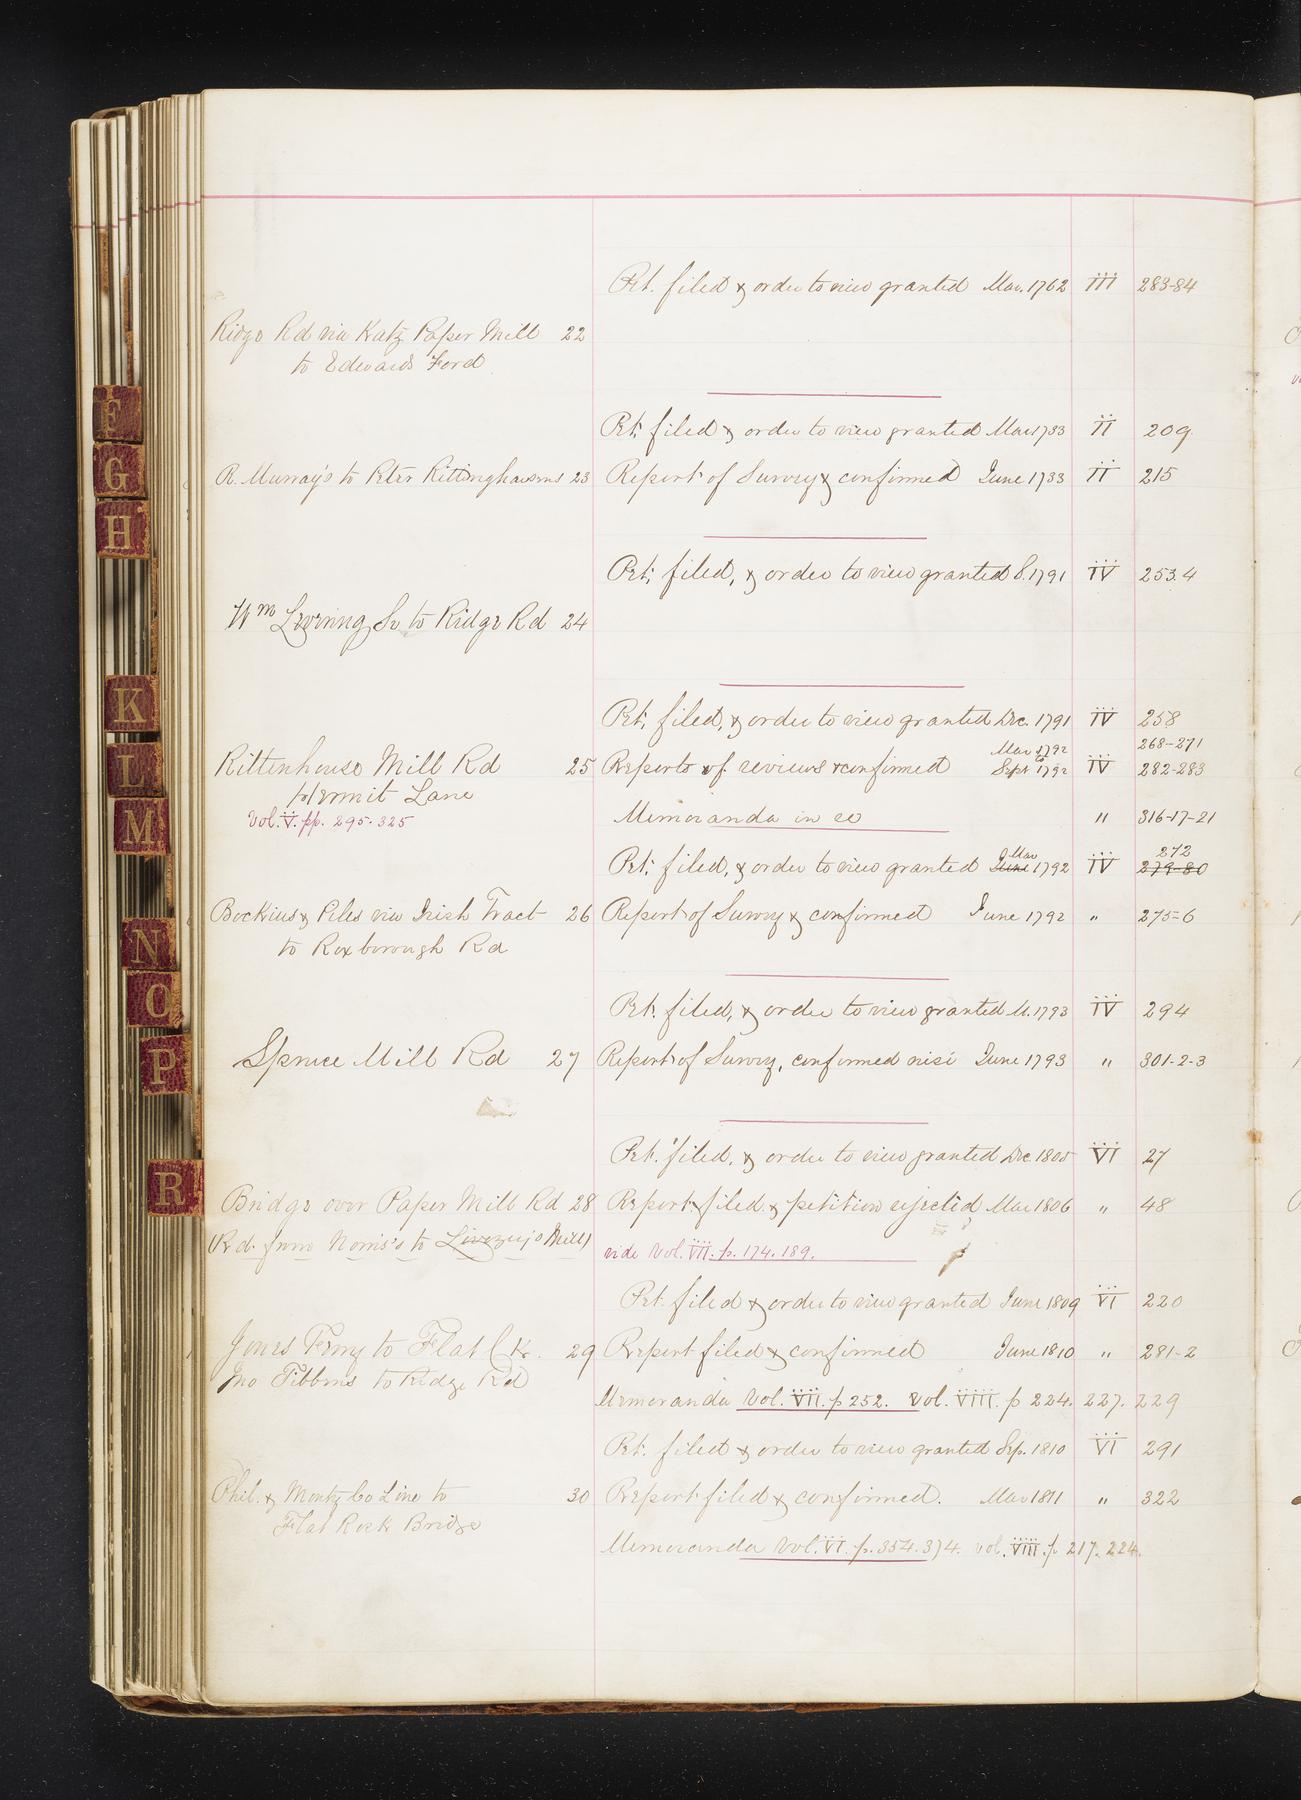 Pet. filed & order to view granted Mar. 1762 III 283-84
Ridge Rd via Katz Paper Mill 22
to Edwards Ford
Pet. filed & order to view granted Mar 1733 II 209
R. Murray's to Peter Rittinghausens 23 Report of Survey & confirmed June 1733 II 215
Pet. filed, & order to view granted S. 1791 IV 253.4
Wm Levering Sr to Ridge Rd 24
Pet. filed, & order to view granted Dec. 1791 IV 258
Mar 1792 268-271
Rittenhouse Mill Rd 25 Reports of reviews & confirmed Sept 1792 IV 282-283
Hermit Lane
Vol. V. pp. 295. 325 Memoranda in re " 316-17-21
Mar 272
Pet. filed, & order to view granted June 1792 IV 279-80
Bockius & Piles via Irish Tract 26 Report of Survey & confirmed June 1792 " 275-6
to Roxborough Rd
Pet. filed, & order to view granted M. 1793 IV 294
Spruce Mill Rd 27 Report of Survey, confirmed nisi June 1793 " 301-2-3
Pet. filed, & order to view granted Dec 1805 VI 27
Bridge over Paper Mill Rd 28 Report filed & petition rejected Mar 1806 " 48
Rd. from Norris's to Livezey's Mill) vide Vol. VII. p. 174. 189.
Pet. filed & order to view granted June 1809 VI 220
Jones Ferry to Flat 29 Report filed & confirmed June 1810 " 281-2
Jno Tibbens to Ridge Rd
Memoranda Vol. VII. p 252. Vol. VIII. p 224. 227. 229
Pet. filed & order to view granted Sep. 1810 VI 291
Phil. & Montg Co Line to 30 Report filed & confirmed. Mar 1811 " 322
Flat Rock Bridge
Memoranda Vol. VI. p. 354. 374. vol. VIII. p 217. 224.
F
G
H
K
L
M
N
O
P
R